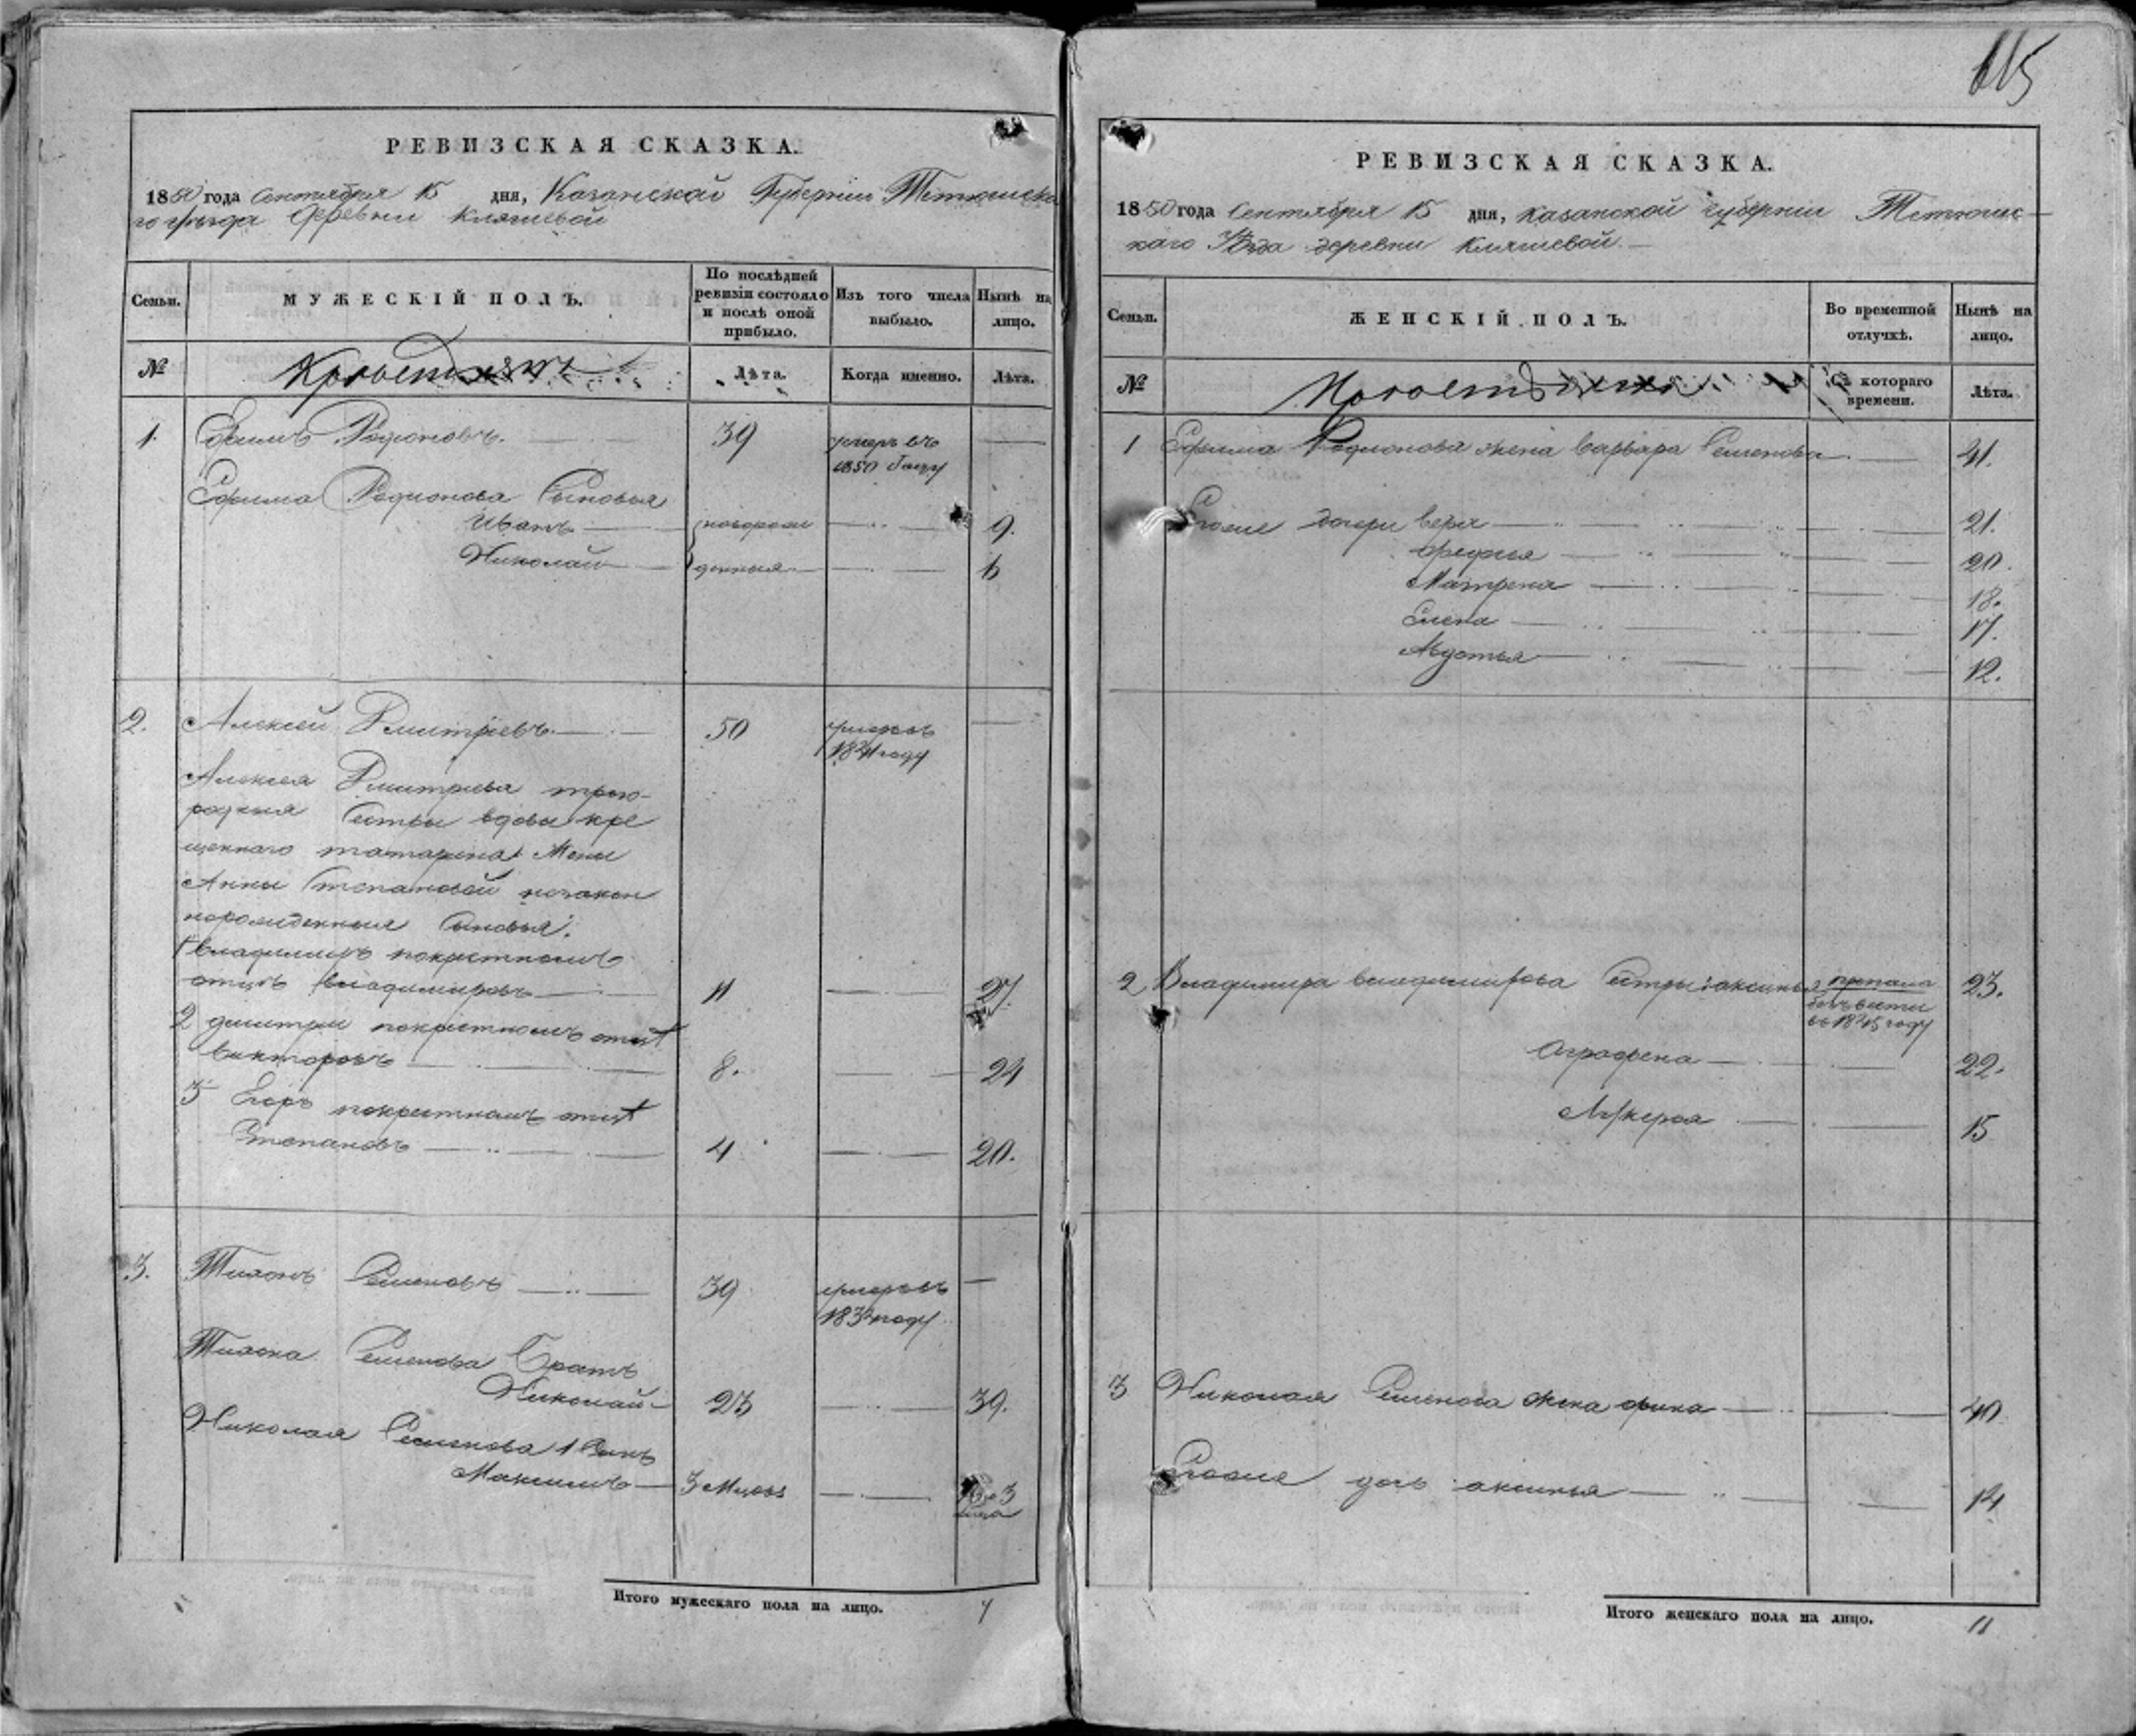 115
РЕВИЗСКАЯ СКАЗКА.
1850 года Сентября 15 дня, Казанской Губернiи Тетюшска
го уѣзда Деревни Кляшевой
Семьи.
МУЖЕСКІЙ ПОЛЪ.
По послѣдней ревизіи состояло и послѣ оной прибыло.
Изъ того числа выбыло.
Нынѣ на лицо.
№
Лѣта.
Когда именно.
Лѣта.
1. Ефимъ Родионовъ. 39 умеръ въ
1850 году
Ефима Родионова Сыновья
Иванъ новорож 9.
Николай денныя 6
2. Алексей Дмитрiевъ 50 умеръ въ
1841 году
Алексея Дмитриева трою-
родныя Сестры вдовы кре
щеннаго татарина
Анны Степановой незакон
норожденныя Сыновья:
1 Владимиръ покрестномъ
отцѣ Владимировъ 11 27.
2 дмитри покрестномъ отцѣ
Викторовъ 8. 24
3 Егоръ покрестномъ отцѣ
Степановъ 4 20.
3. Тихонъ Семеновъ 39 умеръ въ
году
Тихона Семенова Братъ
Николай 23 39.
Николая Семенова 1 Сынъ
Максимъ 3 Мцовъ
Итого мужескаго пола на лицо. 7
РЕВИЗСКАЯ СКАЗКА.
1850 года Сентября 15 дня, Казанской губернiи Тетюшс-
каго деревни Кляшевой
Семьи.
ЖЕНСКІЙ ПОЛЪ.
Во временной отлучкѣ.
Нынѣ на лицо.
№
Съ котораго времени.
Лѣта.
1 Ефима Родионова жена Варвара Семенова 41.
дочери Вера 21.
20.
Матрена 18.
Елена 17.
Авдотья 12.
2 Владимира владимирова Сестры: аксинья пропала 23.
безъ вести
въ 1845 году
Аграфена 22.
15
3 Николая Семенова жена 40
дочь аксинья 14
Итого женскаго пола на лицо. 11